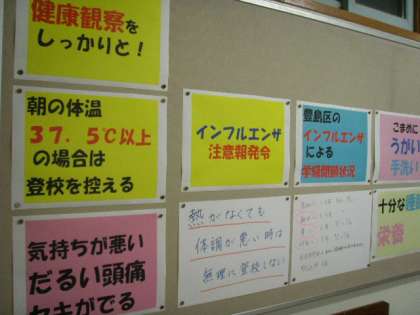 健康観察を
しっかりと！
朝の体温
37．5℃以上
の場合は
登校を控える
気持ちが悪い
だるい頭痛
セキがでる
インフルエンザ
注意報発令
熱がなくても
体調が悪い時は
無理に登校しない
豊島区の
インフルエンザ
による
学級閉鎖状況
こまめに
うがい
手洗い
十分な
栄養